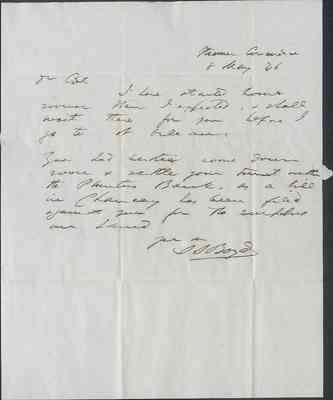 Steamer
8 May '46
Dr Col
I have started home
sooner than I expected, & shall
wait there for you before I
go to N Orleans.
You had better come down
soon & settle your business with
the Planters Bank, as a bill
in Chancery has been filed
against you for the surplus
your
S S Boyd